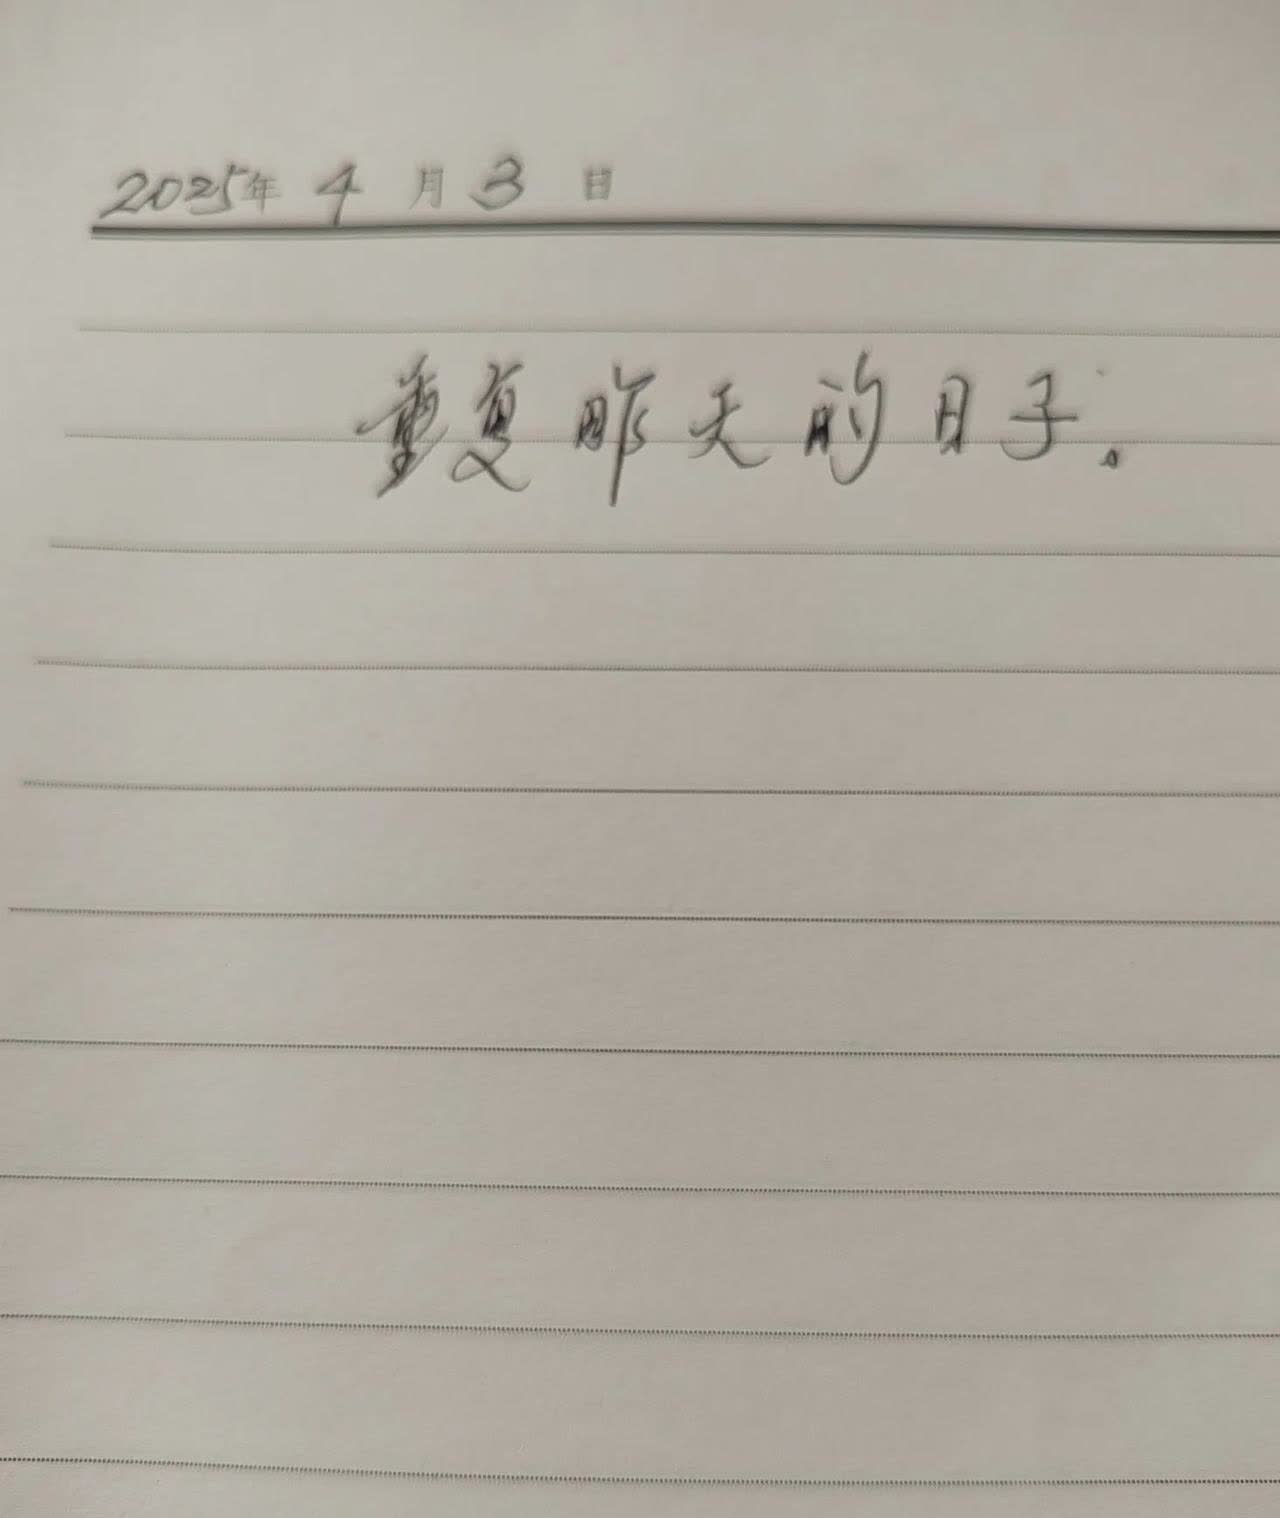 2025年 4 月 3 日
重复昨天的日子。